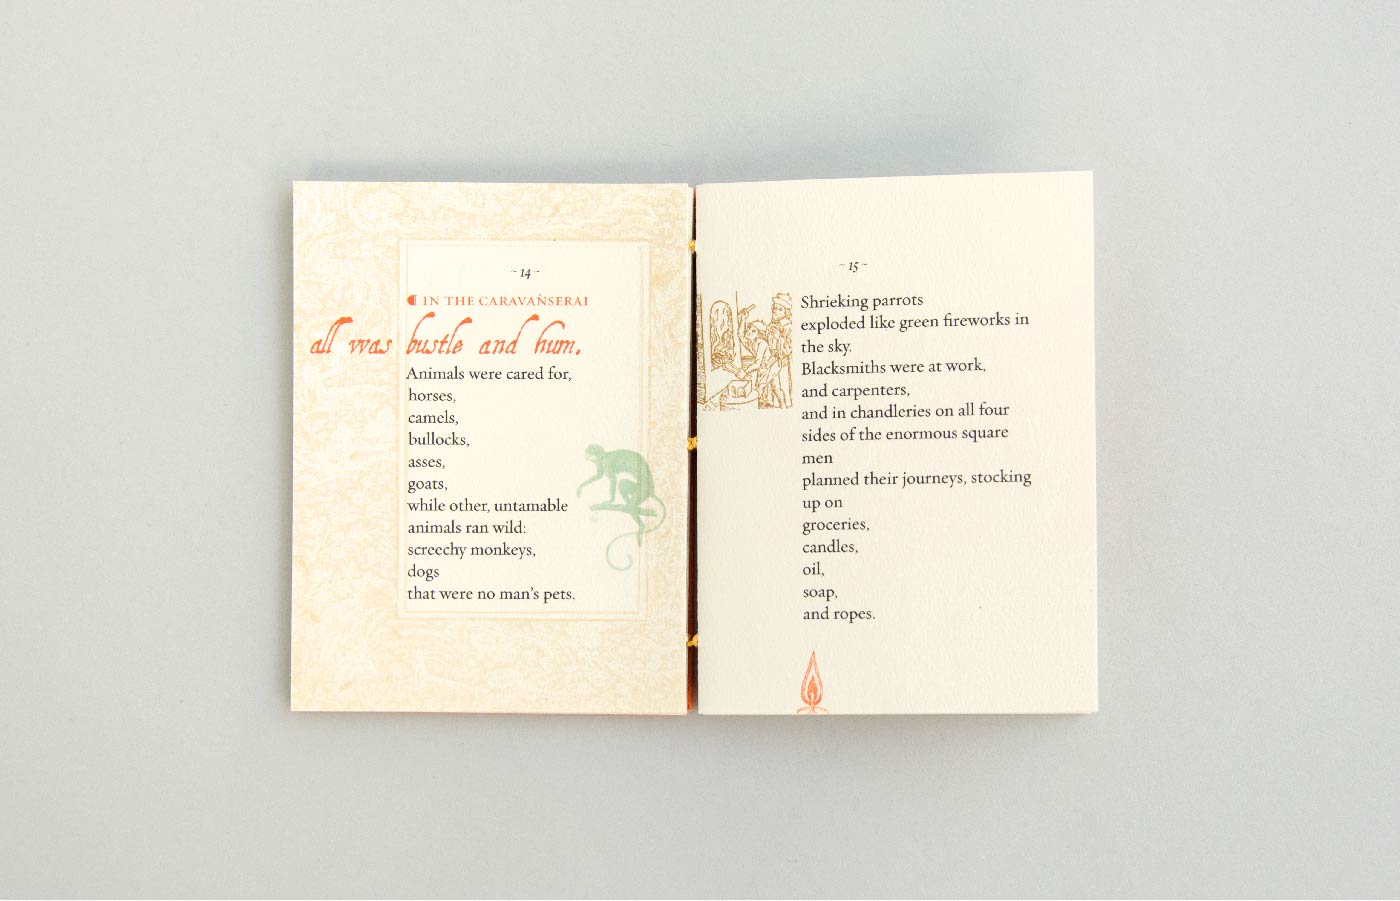 ~ 14 ~
¶ IN THE CARAVANSERAI
all was bustle and hum.
Animals were cared for,
horses,
camels,
bullocks,
asses,
goats,
while other, untamable
animals ran wild:
screechy monkeys,
dogs
that were no man's pets.
~ 15 ~
Shrieking parrots
exploded like green fireworks in
the sky.
Blacksmiths were at work,
and carpenters,
and in chandleries on all four
sides of the enormous square
men
planned their journeys, stocking
up on
groceries,
candles,
oil,
soap,
and ropes.